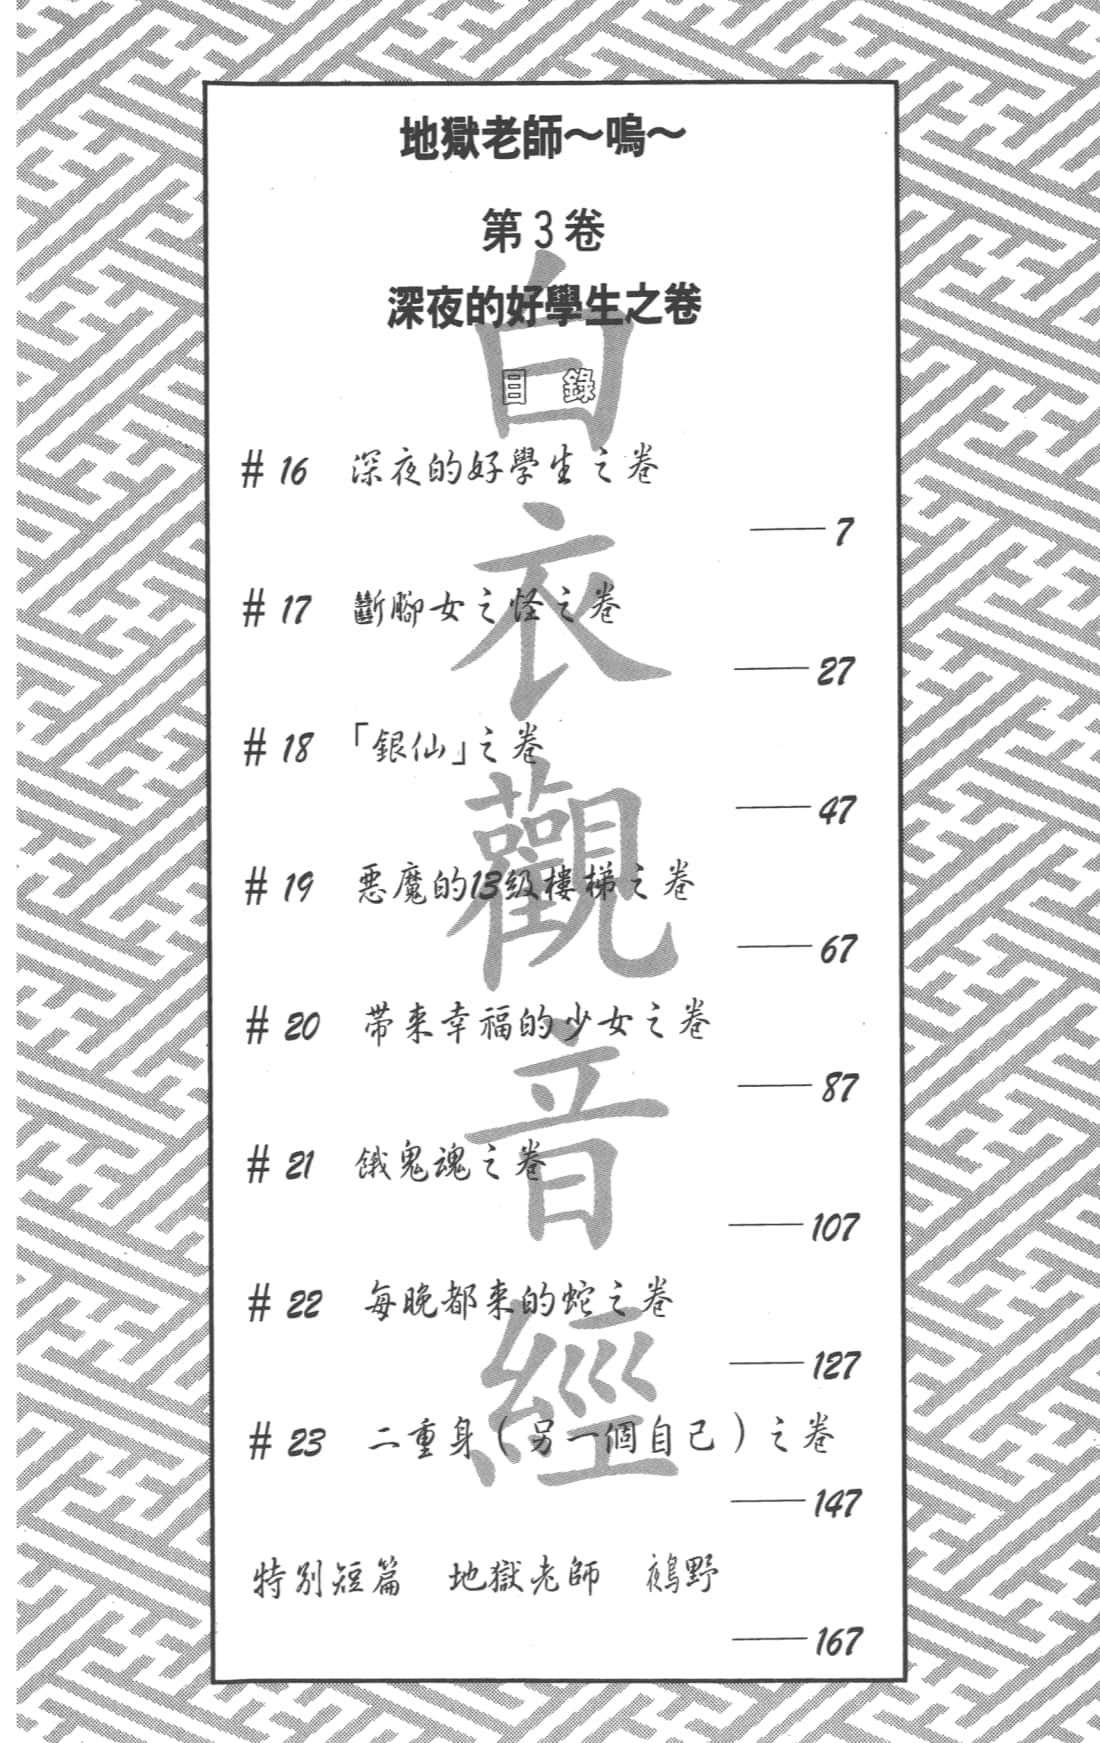 地獄老師～嗚～
第3卷
深夜的好學生之卷
目錄
# 16 深夜的好學生之卷
7
# 17 斷腳女之怪之卷
27
# 18 「銀仙」之卷
47
# 19 惡魔的13級樓梯之卷
67
# 20 帶來幸福的少女之卷
87
# 21 餓鬼魂之卷
107
# 22 每晚都來的蛇之卷
127
# 23 二重身(另一個自己)之卷
147
特別短篇 地獄老師 鵺野
167
白衣觀音經